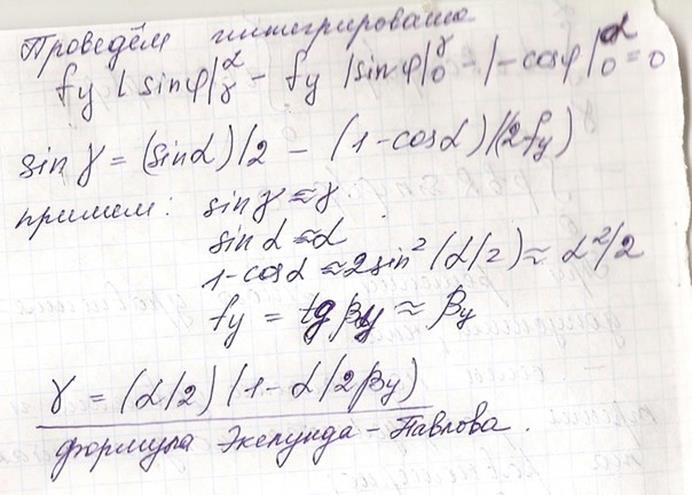 Проведём интегрирование
fy |sinφ|αγ - fy |sinφ|γ0 - |-cosφ|α0 = 0
sin γ = (sinα)/2 - (1-cosα)/(2fy)
примем: sin γ ≈ γ
sin α ≈ α
1-cosα ≈ 2sin²(α/2) ≈ α²/2
fy = tg βy ≈ βy
γ = (α/2)(1-α/2βy)
формула Экелунда - Павлова.